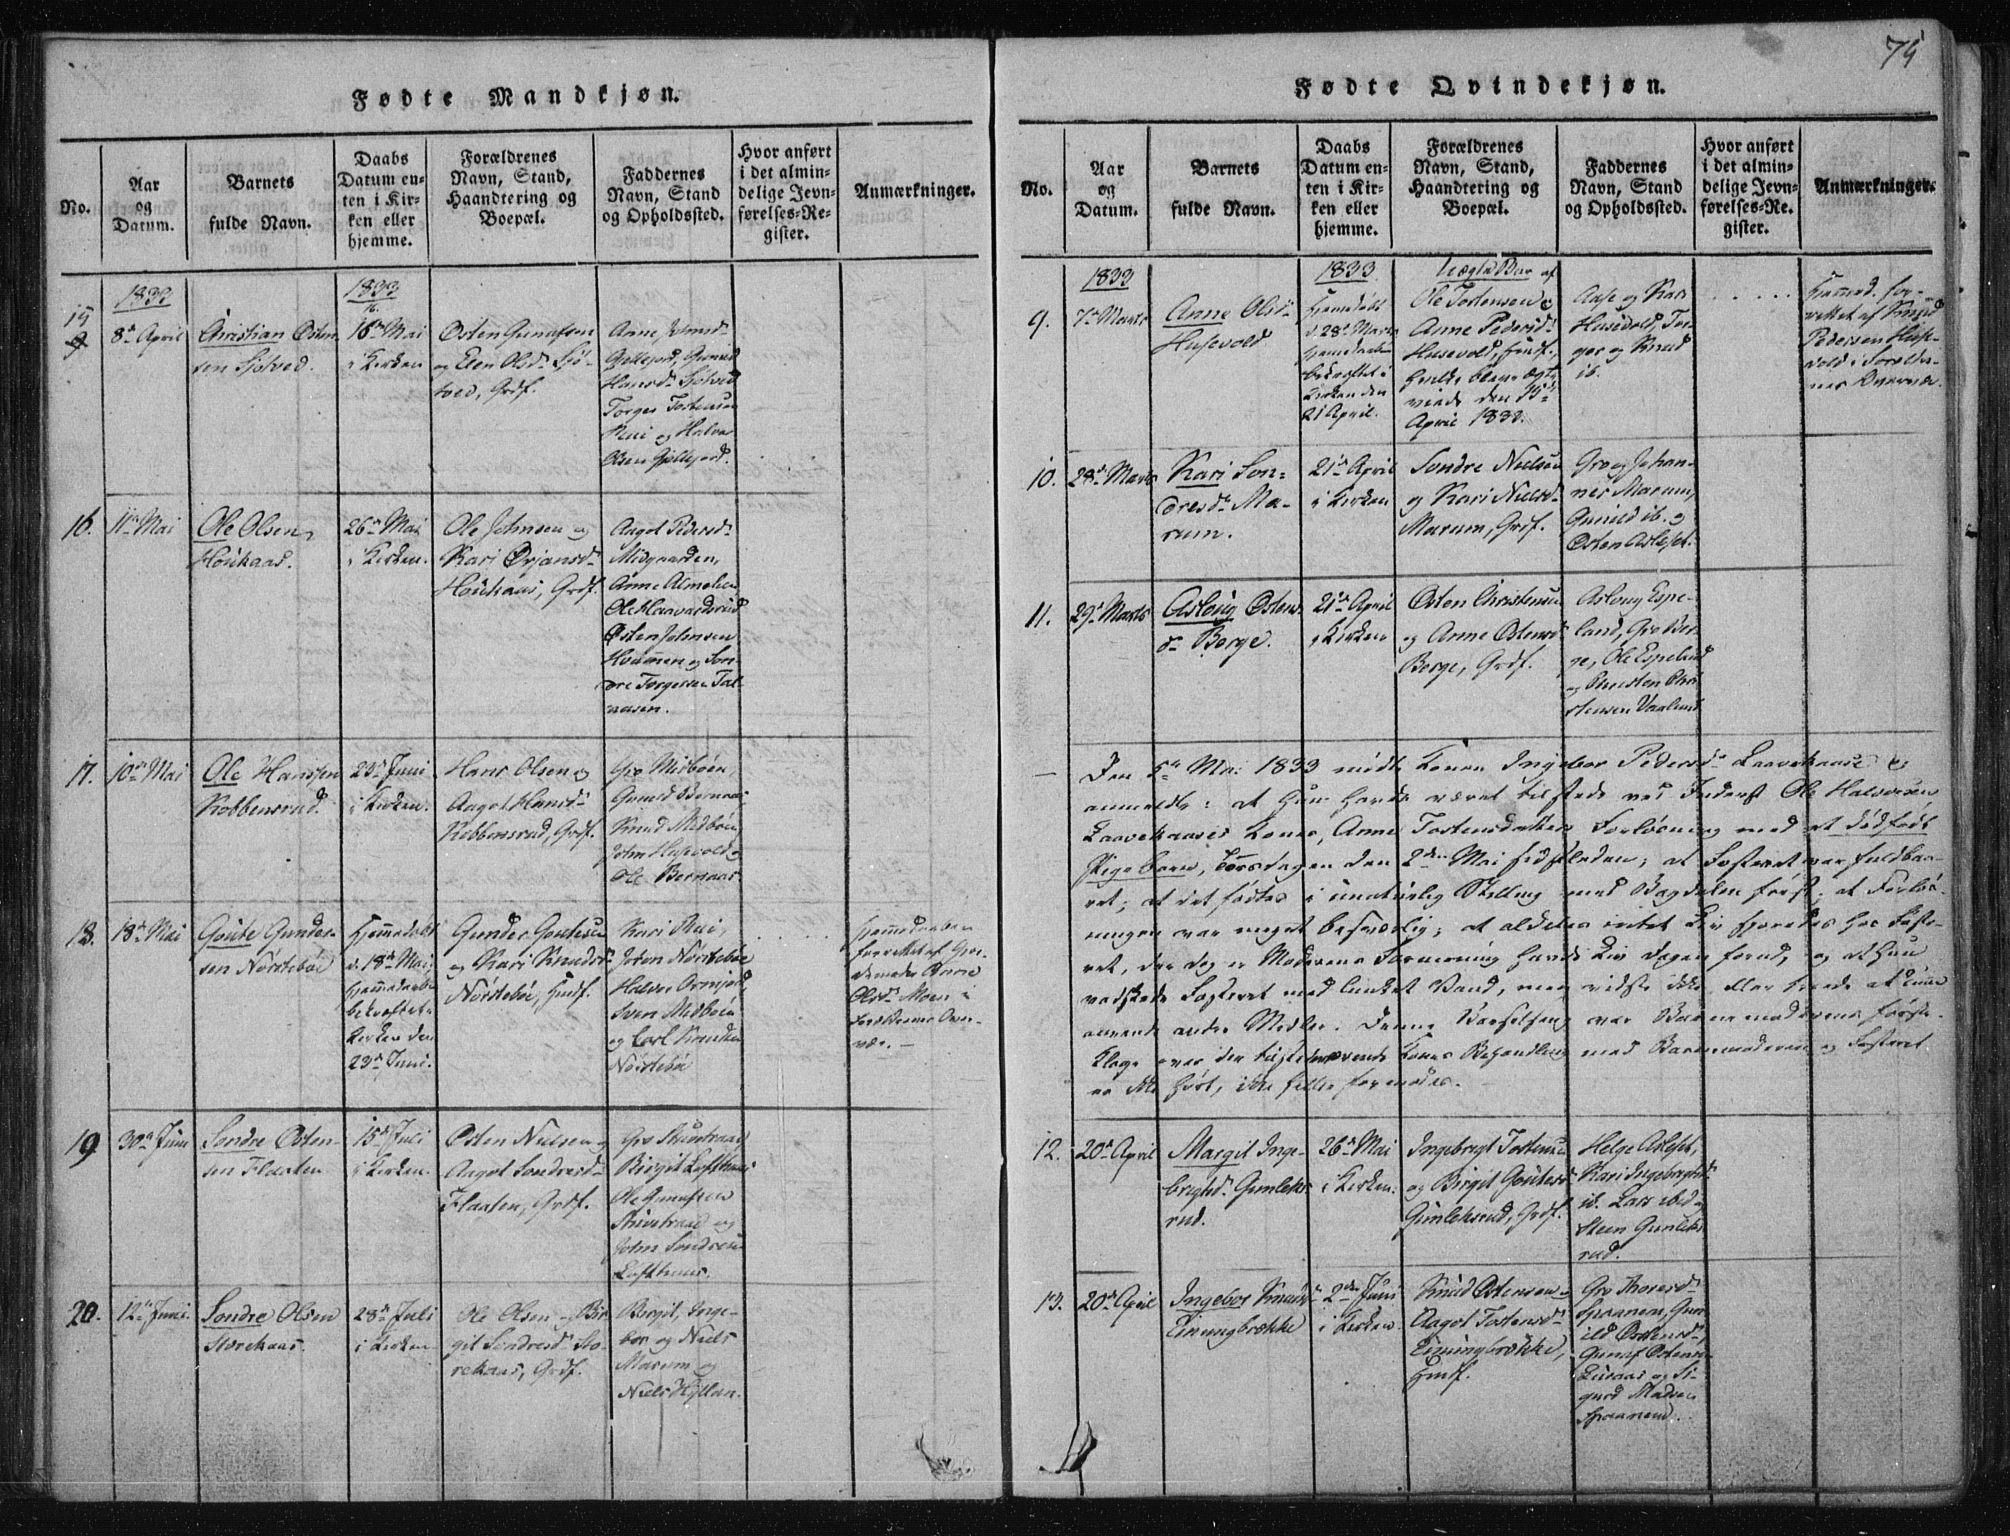 Fødte Mandkjøn.
No.
Aar
og
Datum.
Barnets
fulde Navn.
Daabs
Datum en-
ten i Kir-
ken eller
hjemme.
Forældrenes
Navn, Stand,
Haandtering og
Boepæl.
Faddernes
Navn, Stand
og Opholdssted.
Hvor anført
i det almin-
delige Jevn-
førelses-Re-
gister.
Anmærkninger.
15
1833
8de April
Christian Østen-
sen Sjótved.
1833
16de Mai
i Kirken
Østen Gunufsen
og Elen Olsdr Sjó-
tved, Grdf.
Anne
Gjellejord, Gunild
Hansdr Sjótved
Torger Tostensen
Rui og Halvor
Olsen Gjellejord.
16.
11te Mai
Ole Olsen
Hóukaas.
26de Mai
i Kirken.
Ole Johnsen og
Kari Ørjansdr
Hóukaas, Grdf.
Aagot Pedersdr
Midgaarden,
Anne Almelien
Ole Haavardsrud
Østen Johnsen
og Son-
dre Torgersen Tal-
aasen.
17.
10de Mai
Ole Hanssen
Kobbensrud.
23de Juni
i Kirken.
Hans Olsen og
Aagot Hansdr
Kobbensrud, Grdf.
Gro Midbóen,
Gunild Bernaas
Knud Midbóen
John Husevold og
Ole Bernaas.
18.
18de Mai
Góute Gunder-
sen Nórstebóe
Hjemmedóbt
d. 18de Mai,
Hjemmedaaben
bekræftet i
Kirken den
23de Juni.
Gunder Góutesen
og Kari Knudsdr
Nórstebóe, Husf.
Kari Rui,
Joren Nórstebóe
Halvor Ormjord
Sven Midbóen
og Carl Knudsen
Nórstebóe
Hjemmedaaben
forrettet af Gjor-
demoder
Olsdr Moen i
Forældrenes Over-
vær.
19.
30te Juni
Sondre Østen-
sen Flaaten
15de Juli
i Kirken.
Østen Nielsen og
Aagot Sondresdr
Flaaten, Grdf.
Gro Skinstraad
Birgit Lofthuus
Ole Gunufsen
Skinstraad og
John Sondresen
Lofthuus.
20.
12te Juni
Sondre Olsen
Storekaas.
28de Juli
i Kirken
Ole Olsen og Bir-
git Sondresdr Sto-
rekaas, Grdf.
Birgit, Inge-
bor og Niels
Marum og
Niels Hyllan.
75
Fødte Qvindekjøn.
No.
Aar
og
Datum.
Barnets
fulde Navn.
Daabs
Datum en-
ten i Kir-
ken eller
hjemme.
Forældrenes
Navn, Stand,
Haandtering og
Boepæl.
Faddernes
Navn, Stand
og Opholdssted.
Hvor anført
i det almin-
delige Jevn-
førelses-Re-
gister.
Anmærkninger.
9.
1833
7de Marts
Anne Olsdr
Husevold
1833
Hjemdóbt
d. 28de Marts
Hjemmedaaben
bekræftet i
Kirken den
21 April.
Uægte Barn af
Ole Tostensen og
Anne Pedersdr
Husevold, Husf.,
hvilke bleve ægte-
viede den
April 1833.
Aase og Kari
Husevold, Tor-
ger og Knud
ib.
Hjemmed. for-
rettet af Knud
Pedersen Huse-
vold i Foreldre-
nes Overvær.
10.
28de Marts
Kari Son-
dresdr Ma-
rum.
21de April
i Kirken
Sondre Nielsen
og Kari Nielsdr
Marum, Grdf.
Gro og Johan-
nes Marum,
Gunild ib. og
Østen Aslefet.
11.
29de Marts
Aslóug Østens-
dr Berge.
21de April
i Kirken
Østen Christensen
og Anne Østensdr
Berge, Grdf.
Aslong Espe-
land, Gro Ber-
ge, Ole Espeland
og Christen Chri-
stensen Vaalund.
Den 5te Mai 1833 mødte Konen Ingebor Pedersdr Laavekaase og
anmeldte: at hun havde været tilstede ved Inderst Ole Halvorsen
Laavekaases Kones, Anne Tostensdatters Forlósning med et dódfódt
Pigebarn, Torsdagen den 2den Mai sidstleden; at Fosteret var fuldbaa-
ret; at det fódtes i unaturlig Stilling med Bagdelen fórst; at Forlós-
ningen var meget besværlig; at aldeles intet Liv sporedes hos Foste-
ret, der dog er Moderens Formening havde Liv Dagen forud, og at hun
vadskede Fosteret med lunket Vand, men vidste ikke eller havde at kunne
anvende andre Midler. Denne Barselseng var Barnemoderens fórste.
Klage over den tilstedeværende Kones Behandling med Barnemoderen og Fosteret
er ikke hórt, ikke heller formodes.
12.
20de April
Margit Inge-
brigtsdr Gunleks-
rud.
26de Mai
i Kirken.
Ingebregt Tostensen
og Birgit Góutesdr
Gunleksrud, Grdf.
Helge Aslefet,
Kari Ingebregtsdr
ib. Lars ibid og
Steen Gunleks-
rud.
13.
20de April
Ingebor Knudsdr
Einungbrekke
2den Juni
i Kirken.
Knud Østensen og
Aagot Tostensdr
Einungbrekke,
Husf.
Gro Thoresdr
Spaanem, Gun-
ild Østensdr
Gunuf Østensen
og Si-
gurd Madsen
Spaanem.